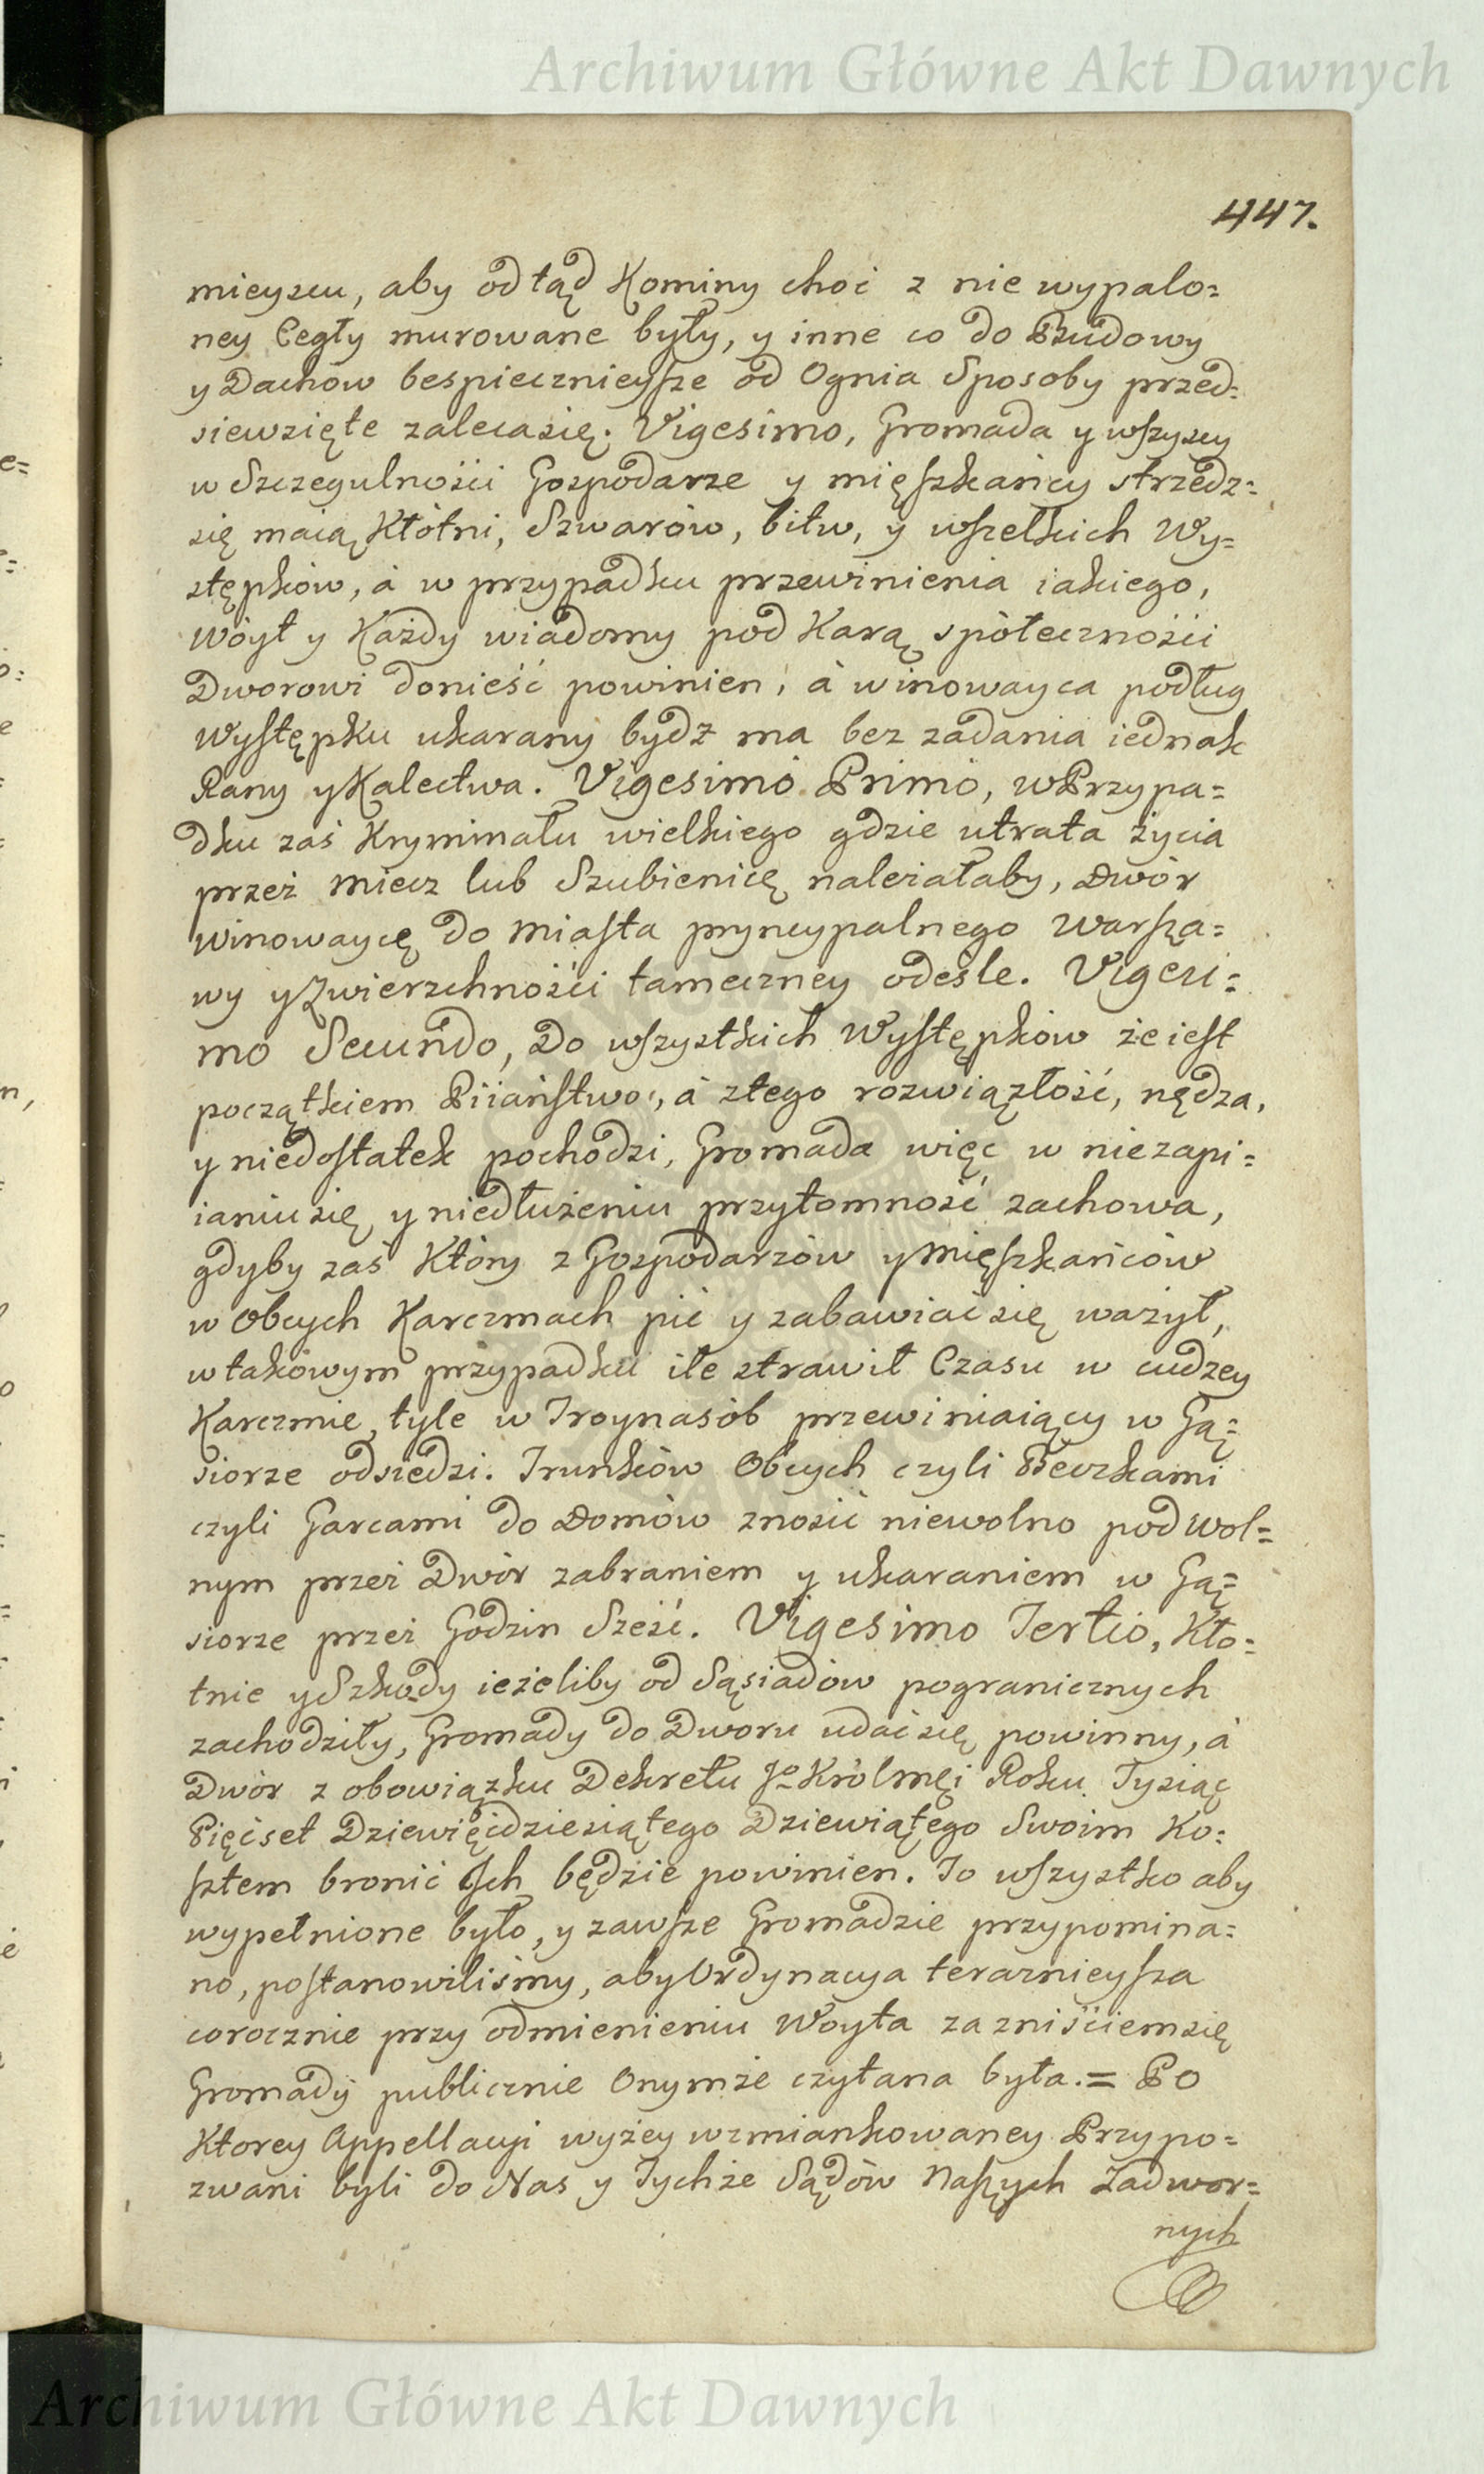 Archiwum Główne Akt Dawnych
447.
mieyscu, aby odtąd Kominy choć z nie wypalo=
ney Cegły murowane były, y inne co do Budowy
y Dachow bespiecznieysze od Ognia Sposoby przed=
siewzięte zalecasię. Vigesimo, Gromada y wszyscy
w Szczegulności Gospodarze y mięszkańcy strzedz=
się maią Kłótni, Swarów, bitw, y wszelkich Wy=
stępków, á w przypadku przewinienia iakiego,
Wóyt y Każdy wiadomy pod Karą społeczności
Dworowi donieść powinien, á winowayca podług
Występku ukarany bydź ma bez zadania iednak
Rany y Kalectwa. Vigesimó Primó, w Przypa=
dku zaś Kryminału wielkiego gdzie utrata życia
przez miecz lub Szubienicę należałaby, Dwór
winowaycę do Miasta pryncypalnego Warsza=
wy y Zwierzchności tameczney odeśle. Vigesi=
mo Secundo, Do wszystkich Występków że iest
początkiem Piiaństwo, á ztego rozwiązłość, nędza,
y niedostatek pochodzi, Gromada więc w niezapi=
ianiu się y niedłużeniu przytomność zachowa,
gdyby zaś Który z Gospodarzów y Mięszkańców
w Obcych Karczmach pić y zabawiać się ważył,
w takowym przypadku ile strawił Czasu w cudzey
Karczmie, tyle w Troynasób przewiniaiący w Gą=
siorze odsiedzi. Trunków Obcych czyli Beczkami
czyli Garcami do Domów znosić niewolno pod wol=
nym przez Dwór zabraniem y ukaraniem w Gą=
siorze przez Godzin Sześć. Vigesimo Tertio, Kło=
tnie y Szkody ieżeliby od Sąsiadów pogranicznych
zachodziły, Gromady do Dworu udać się powinny, á
Dwór z obowiązku Dekretu Jo Królmci Roku Tysiąc
Pięćset Dziewięćdziesiątego Dziewiątego Swoim Ko=
sztem bronić Ich będzie powinien. To wszystko aby
wypełnione było, y zawsze Gromadzie przypomina=
no, postanowiliśmy, aby Ordynacya teraznieysza
corocznie przy odmienieniu Woyta za zniściemsię
Gromady publicznie Onymże czytana była.= Po
Ktorey Appellacyi wyżey wzmiankowaney Przypo=
zwani byli do Nas y Tychże Sądów Naszych Zadwor=
nych
Archiwum Główne Akt Dawnych